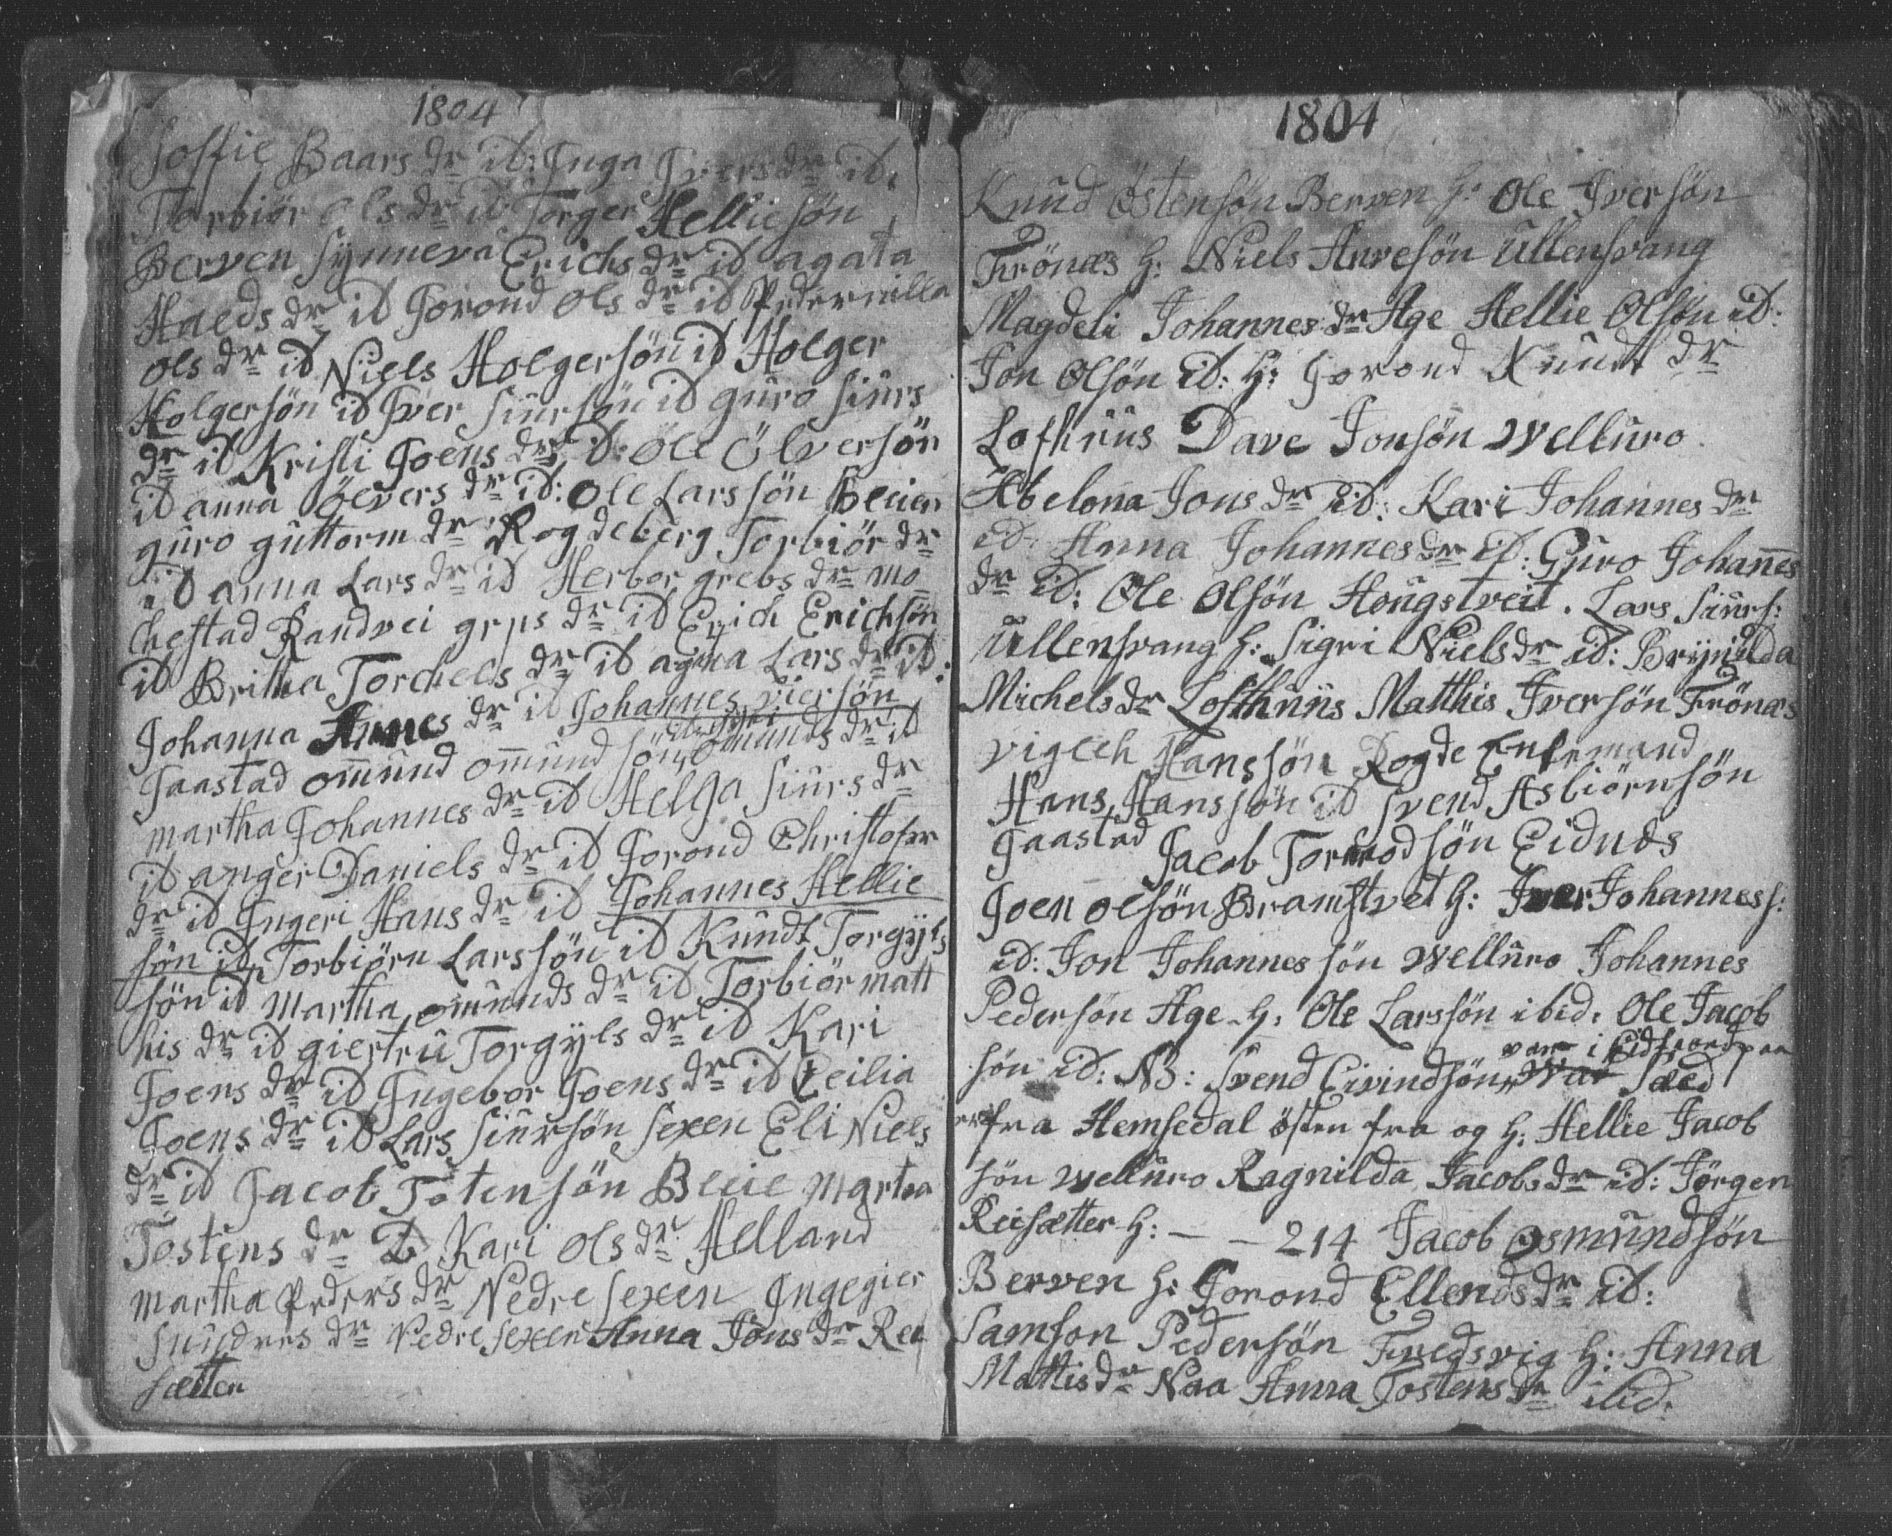 1804
Soffie Baars dr id: Inga Ivers dr id:
Torbiør Ols dr id Torger Helliesøn
Berven Synneva Erichs dr id agata
Haldʒ dr id Jorond Ols dr id Pedernilla
Ols dr id Niels Holgersøn id Holger
Holgersøn id Iver Siursøn id guro Siurs
dr id Kristi Joens dr id: Ole Ølversøn
id anna Ølvers dr id: Ole Larssøn Bleien
guro guttorm dr Rogdeberg Torbiør dr
id anna Lars dr id Herbor grebs dr mo
chestad Randvei grps dr id Erich Erichsøn
id Britha Torchels dr id agtha Lars dr id:
Johanna Aunes dr id Johannes viersøn
Jaastad omund omundsøn omunds dr id
martha Johannes dr id Helga Siurs dr
id anger Daniels dr id Jorond Christofer
dr id Ingeri Hans dr id Johannes Hellie
søn id Torbiørn Larssøn id Kundt Torgÿls
søn id Martha omunds dr id Torbiør matt
his dr id giertru Torgÿls dr id Kari
Joens dr id Ingebor Joens dr id Ceilia
Joens dr id Lars Siursøn Sexen Eli Niels
dr id Jacob Tostensøn Bleie Martha
Tostens dr id Kari Ols dr Helland
martha Peders dr Nedre Sexen Ingegier
dr Nedre Sexen Anna Jons dr Rei
sætter
1804
Knud Østensøn Berven h: Ole Iversøn
Frønæs h: Niels Anvesøn Ullensvang
Magdeli Johannes dr Age Hellie Olsøn id:
Jon Olsøn id: h: Jorond Knudt dr
Lofthuus Dave Jonsøn Velluro
Abelona Jons dr id: Kari Johannes dr
id: Anna Johannes dr id: Guro Johannes
dr id: Ole Olsøn Hougstveit. Lars Siurs:
Ullensvang h: Sigri Niels dr id: Brynilda
Michels dr Lofthuus Matthis Iversøn Frønæs
vigech Hanssøn Rogde Enkemand
Hans Hanssøn id Svend Asbiørnsøn
Jaastad Jacob Tormodsøn Eidnes
Joen olsøn Bramstvet h: Iver Johannes s:
id: Jon Johannessøn Velluro Johannes
Pedersøn Age h: Ole Larssøn ibid: Ole Jacob
var i Eidfiord paa
søn id: NB: Svend Eivindsøn, Sæd
er fra Hemsedal østen fra og h: Hellie Jacob
søn Velluro Ragnilda Jacobs dr id: Jørgen
Reisætter h: — — 214 Jacob Osmundsøn
Berven h: Jorond Ellends dr id:
Samson Pedersøn Fredsvig h: Anna
Mattis dr Naa Anna Tostens dr ibid: